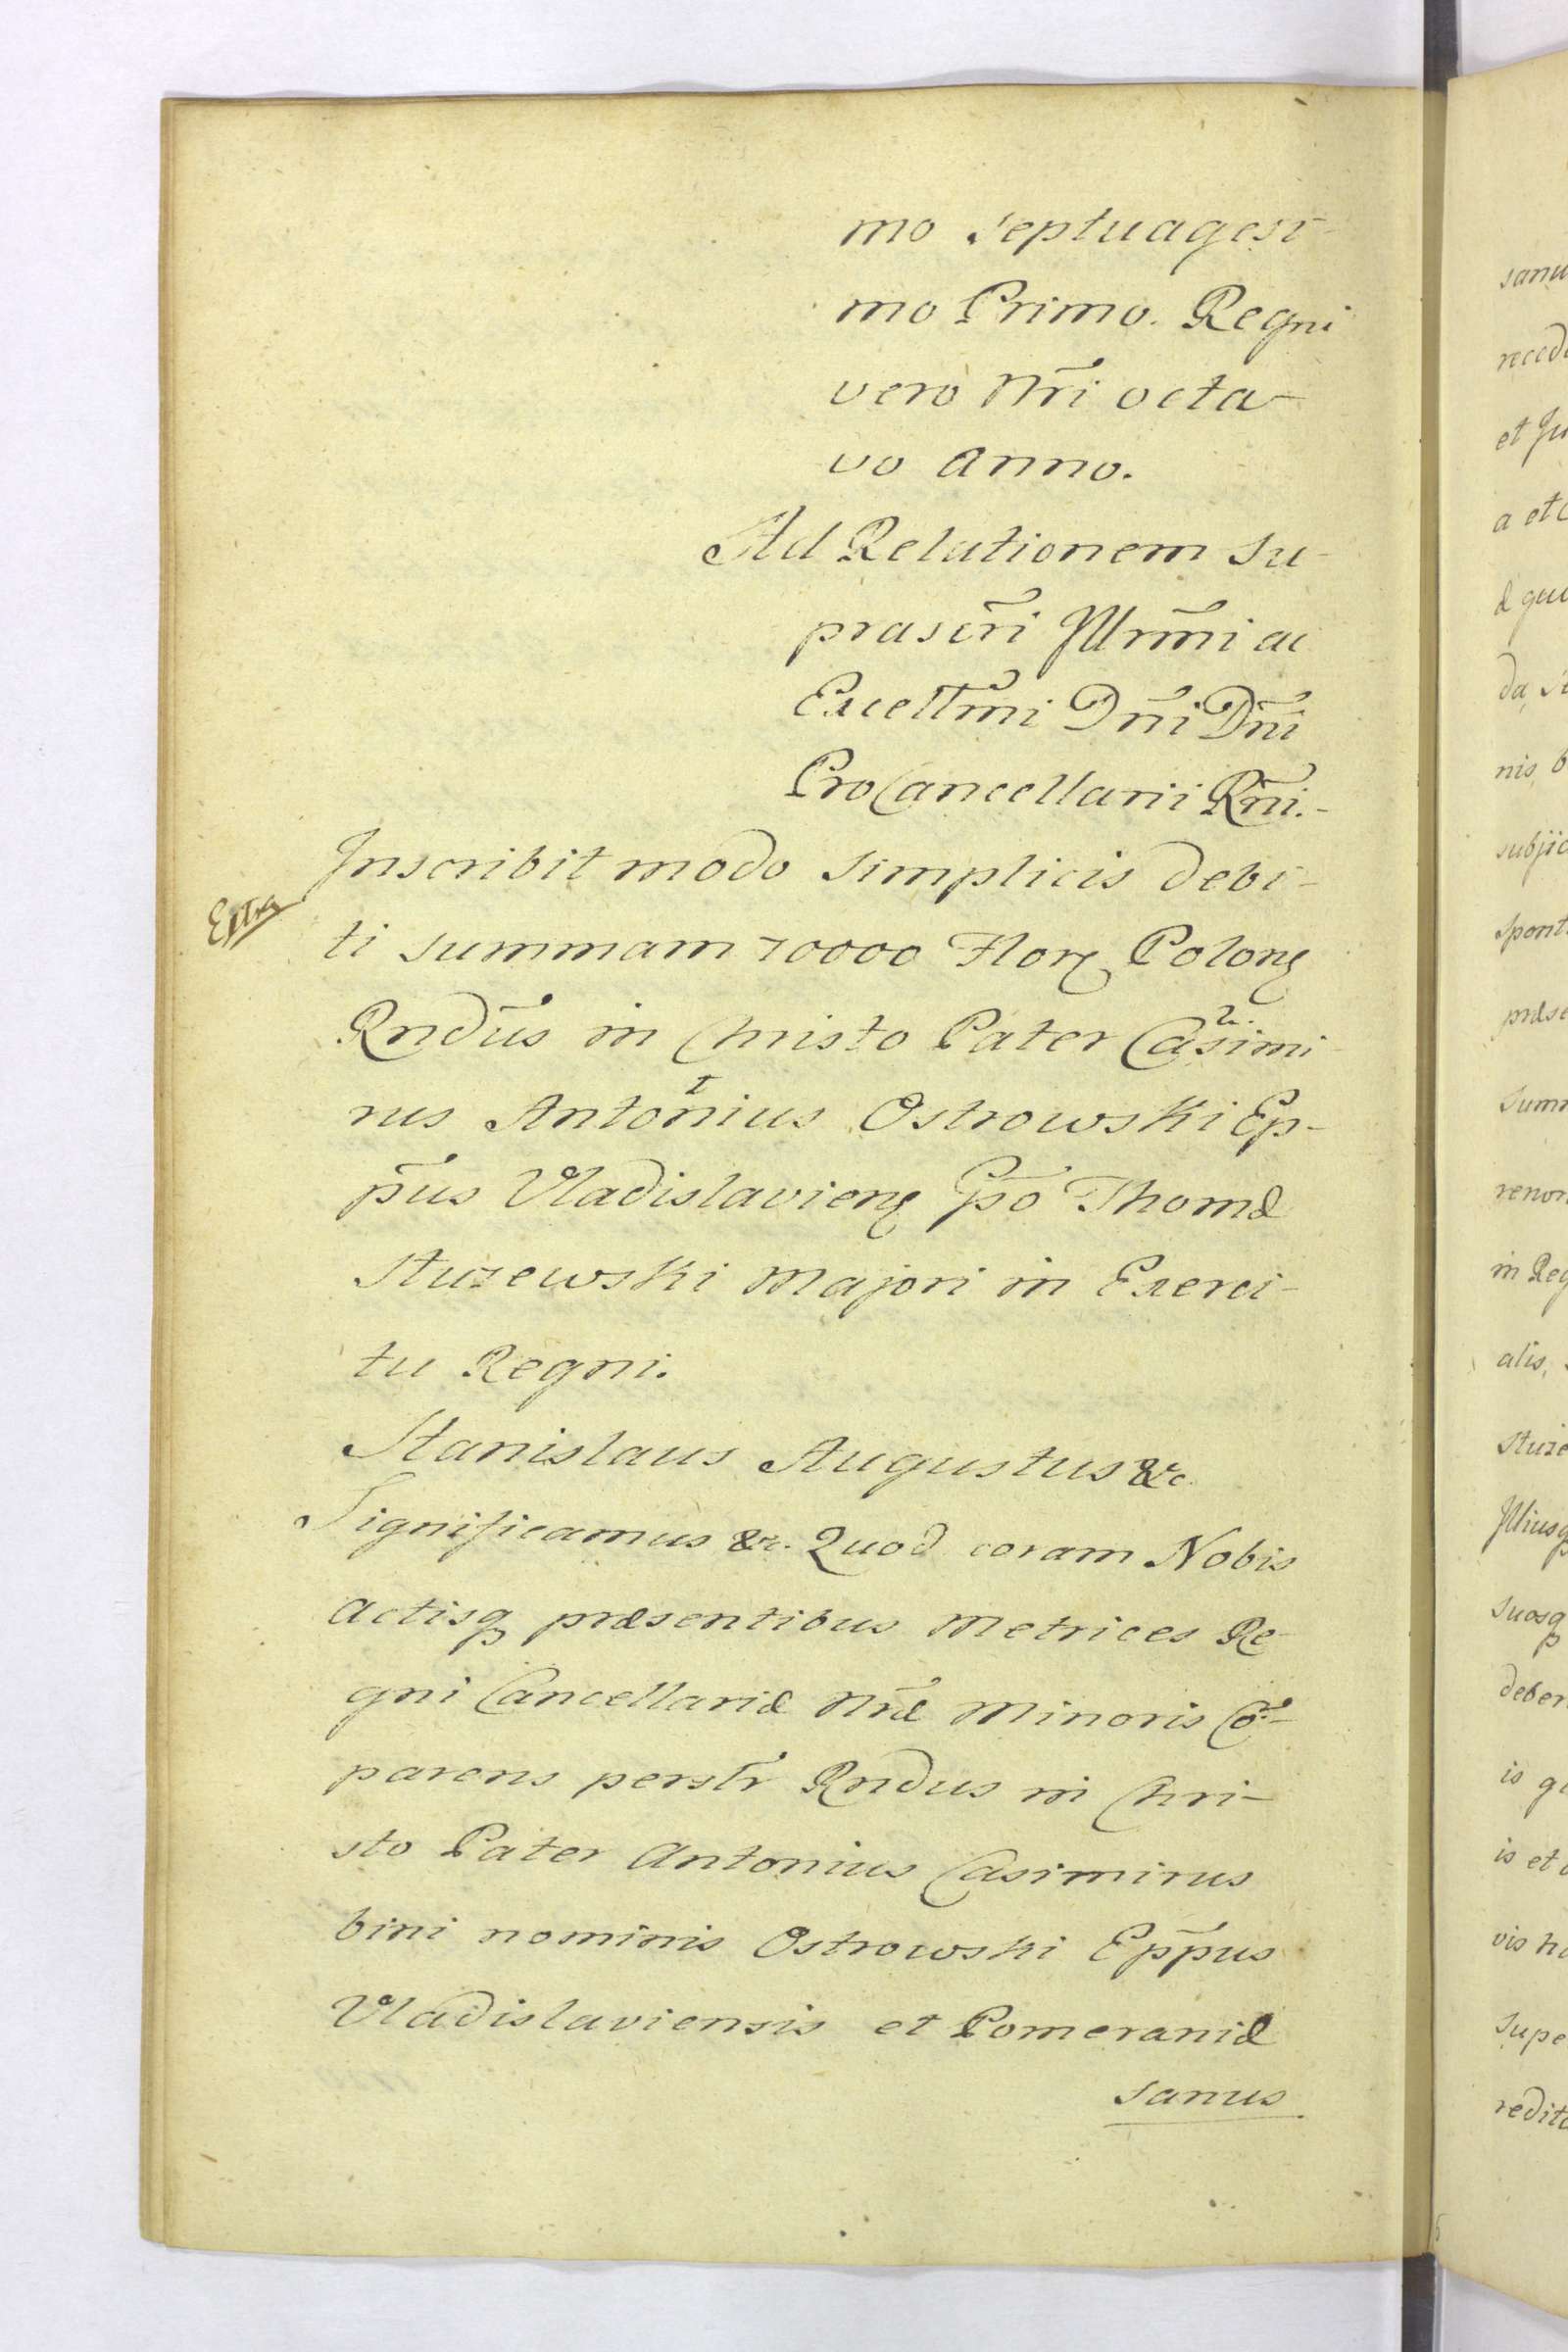 mo Septuagesi-
mo Primo. Regni
vero Nr̃i octa-
vo anno.
Ad Relationem Su-
prascr̃i Jllrm̃i ac
Excellm̃i Dñi Dñi
ProCancellarii Rñi.-
Jnscribit modo Simplicis debi-
Extra
ti summam 70000 Flor Polon
Rndũs in Christo Pater Casimi-
2.
rus Antonius Ostrowski Ep-
1
p̃us Vladislavien Gs̃o Thomæ
Stuzewski Majori in Exerci-
tu Regni.
Stanislaus Augustus &c.
Significamus &c. Quod coram Nobis
actisq præsentibus Metrices Re-
gni Cancellariæ Nræ̃ Minoris Cõ-
parens perslr̃ Rndus in Chri-
sto Pater Antonius Casimirus
bini nominis Ostrowski Epp̃us
Vladislaviensis et Pomeraniæ
sanus
sanu
recedo
et Ju
a et c
æ qui
da, st
nis, b
subjic
spont
præse
summ
renon
in Reg
alis,
Stuze
Jlliusq
suosq
deber
is q
is et
vis h
supe
redito